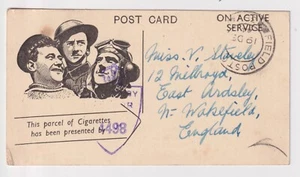 POST CARD
ON ACTIVE
SERVICE
FIELD POST
Miss. V.
12
East Ardsley,
Nr. Wakefield,
England
This parcel of Cigarettes
has been presented by
4498